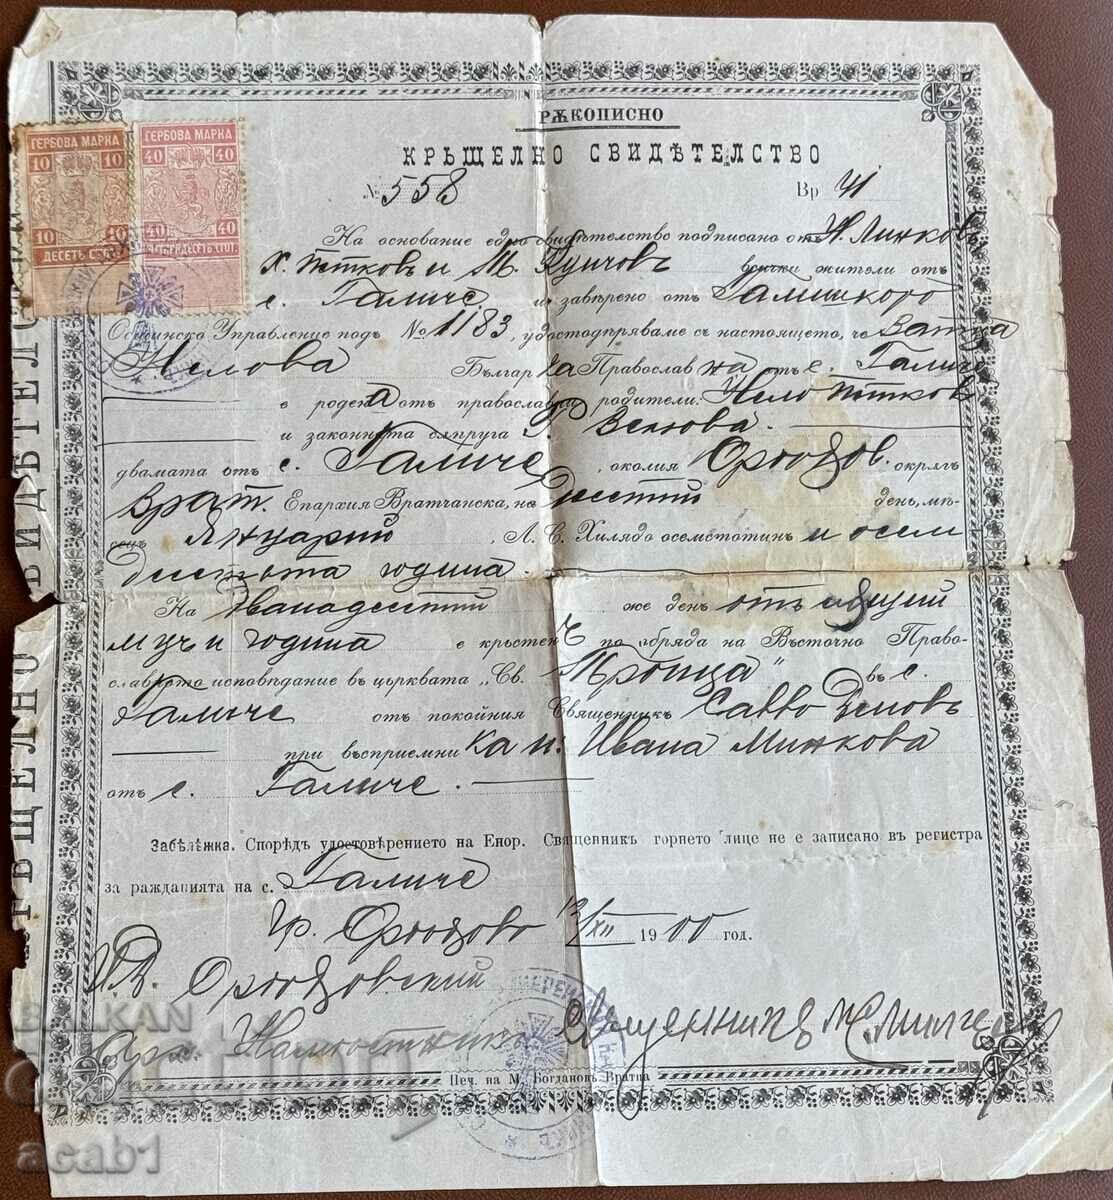 РѪКОПИСНО
КРЪЩЕЛНО СВИДѢТЕЛСТВО
ГЕРБОВА МАРКА
10 10
10 10
ДЕСЕТЬ
ГЕРБОВА МАРКА
40 40
40 40
№ 558 Вр 41
На основание едно свидѣтелство подписано отъ Н. Линковъ
Х. Петковъ и М. всички жители отъ
с. Галиче и завѣрено отъ Галишкото
Общинско Управление подъ № 1183, удостовѣряваме съ настоящето, че
Нелова Българка Православна отъ с. Галиче
е родена отъ православни родители: Нело Петков
и законната съпруга Велюва
двамата отъ с. Галиче, околия Оряхов. окрягъ
Врат. Епархия Вратчанска, на Десетий день, мѣ-
сецъ Януарий Л. С. Хилядо осемстотинъ и осем
десетьта година.
На Дванадесетий же день отъ сѫщий
м-цъ и година е кръстенъ по обряда на Въсточно Право-
славното исповѣдание въ църквата „Св. Тройца" въ с.
Галиче отъ покойния Священникъ Савво
при въсприемника н: Ивана Минкова
отъ с. Галиче.
Забѣлѣжка. Споредъ удостовѣрението на Енор. Священникъ горнето лице не е записано въ регистра
за ражданията на с. Галиче
Гр. Оряхово 12/XII 1900 год.
Оряховский
Намѣстникъ Священникъ
Печ. на М. Богдановъ Вратца
КРЪЩЕЛНО СВИДѢТЕЛС
BALKAN
auction
acab1